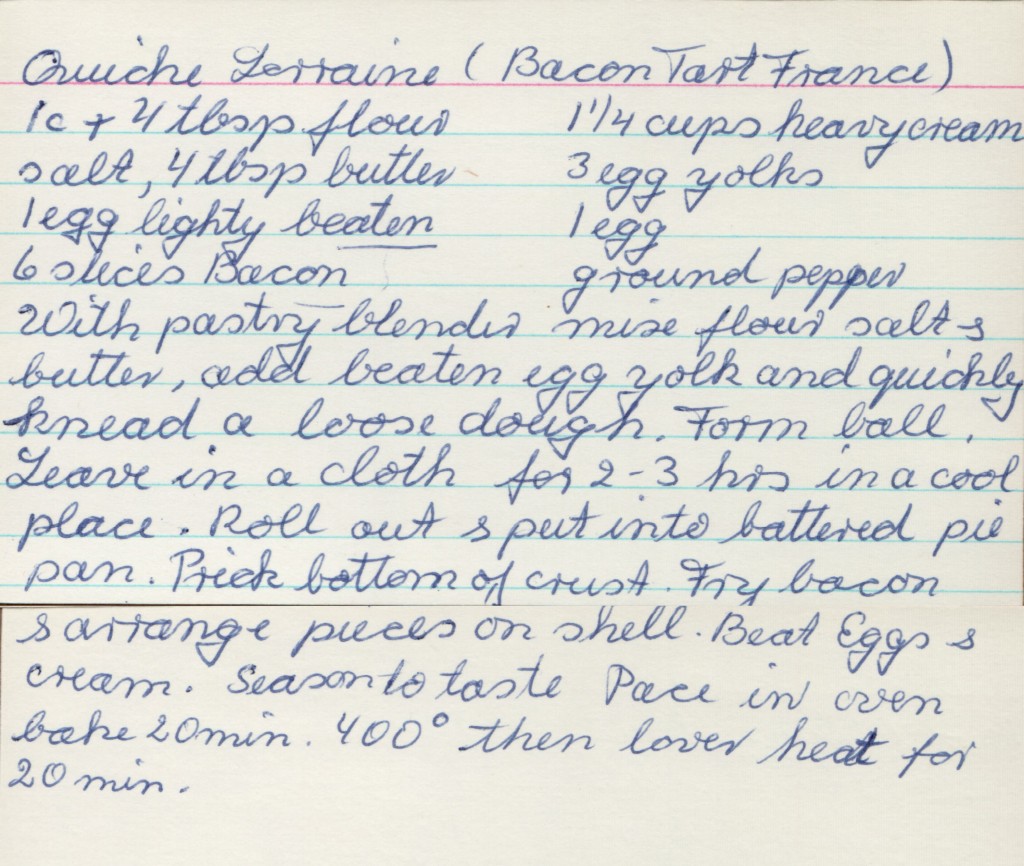 Quiche Lorraine ( Bacon Tart France)
1c + 4 tbsp flour 1 1/4 cups heavy cream
salt, 4 tbsp butter 3 egg yolks
1 egg lighty beaten 1 egg
6 slices Bacon ground pepper
With pastry blender mixe flour salt &
butter, add beaten egg yolk and quickly
knead a loose dough. Form ball.
Leave in a cloth for 2-3 hrs in a cool
place. Roll out & put into battered pie
pan. Prick bottom of crust. Fry bacon
& arrange pieces on shell. Beat Eggs &
cream. Season to taste Pace in oven
bake 20 min. 400° then lover heat for
20 min.